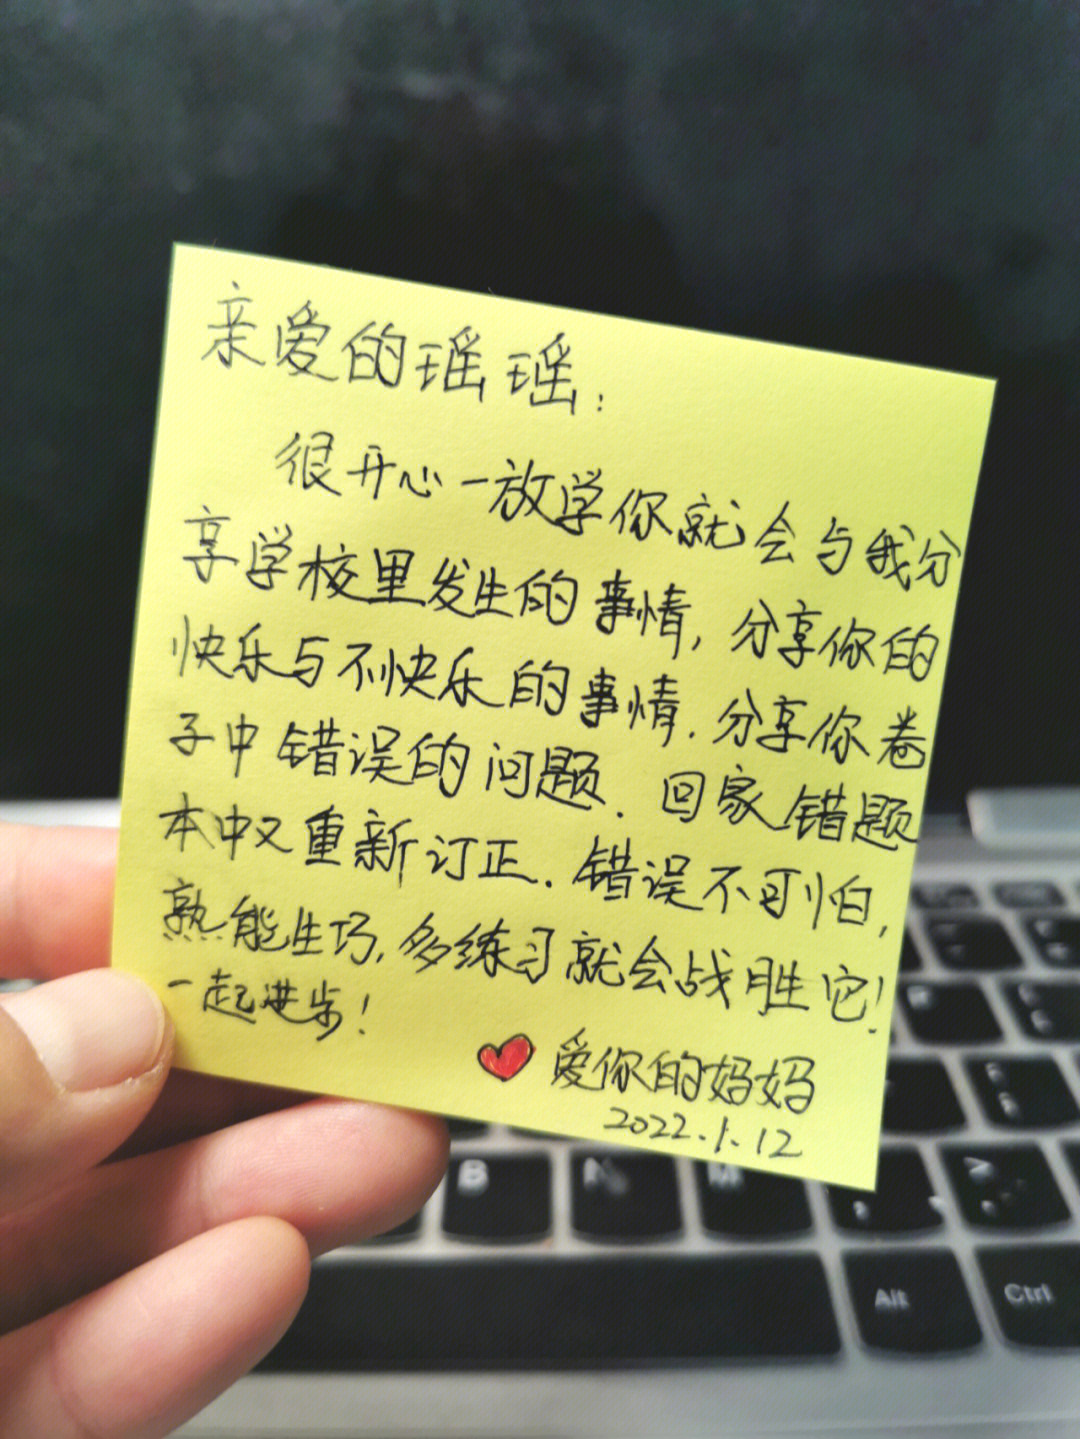 亲爱的瑶瑶：
很开心一放学你就会与我分
享学校里发生的事情，分享你的
快乐与不快乐的事情．分享你卷
子中错误的问题．回家错题
本中又重新订正．错误不可怕，
熟能生巧，多练习就会战胜它！
一起进步！
爱你的妈妈
2022.1.12
B N M
Alt Ctrl